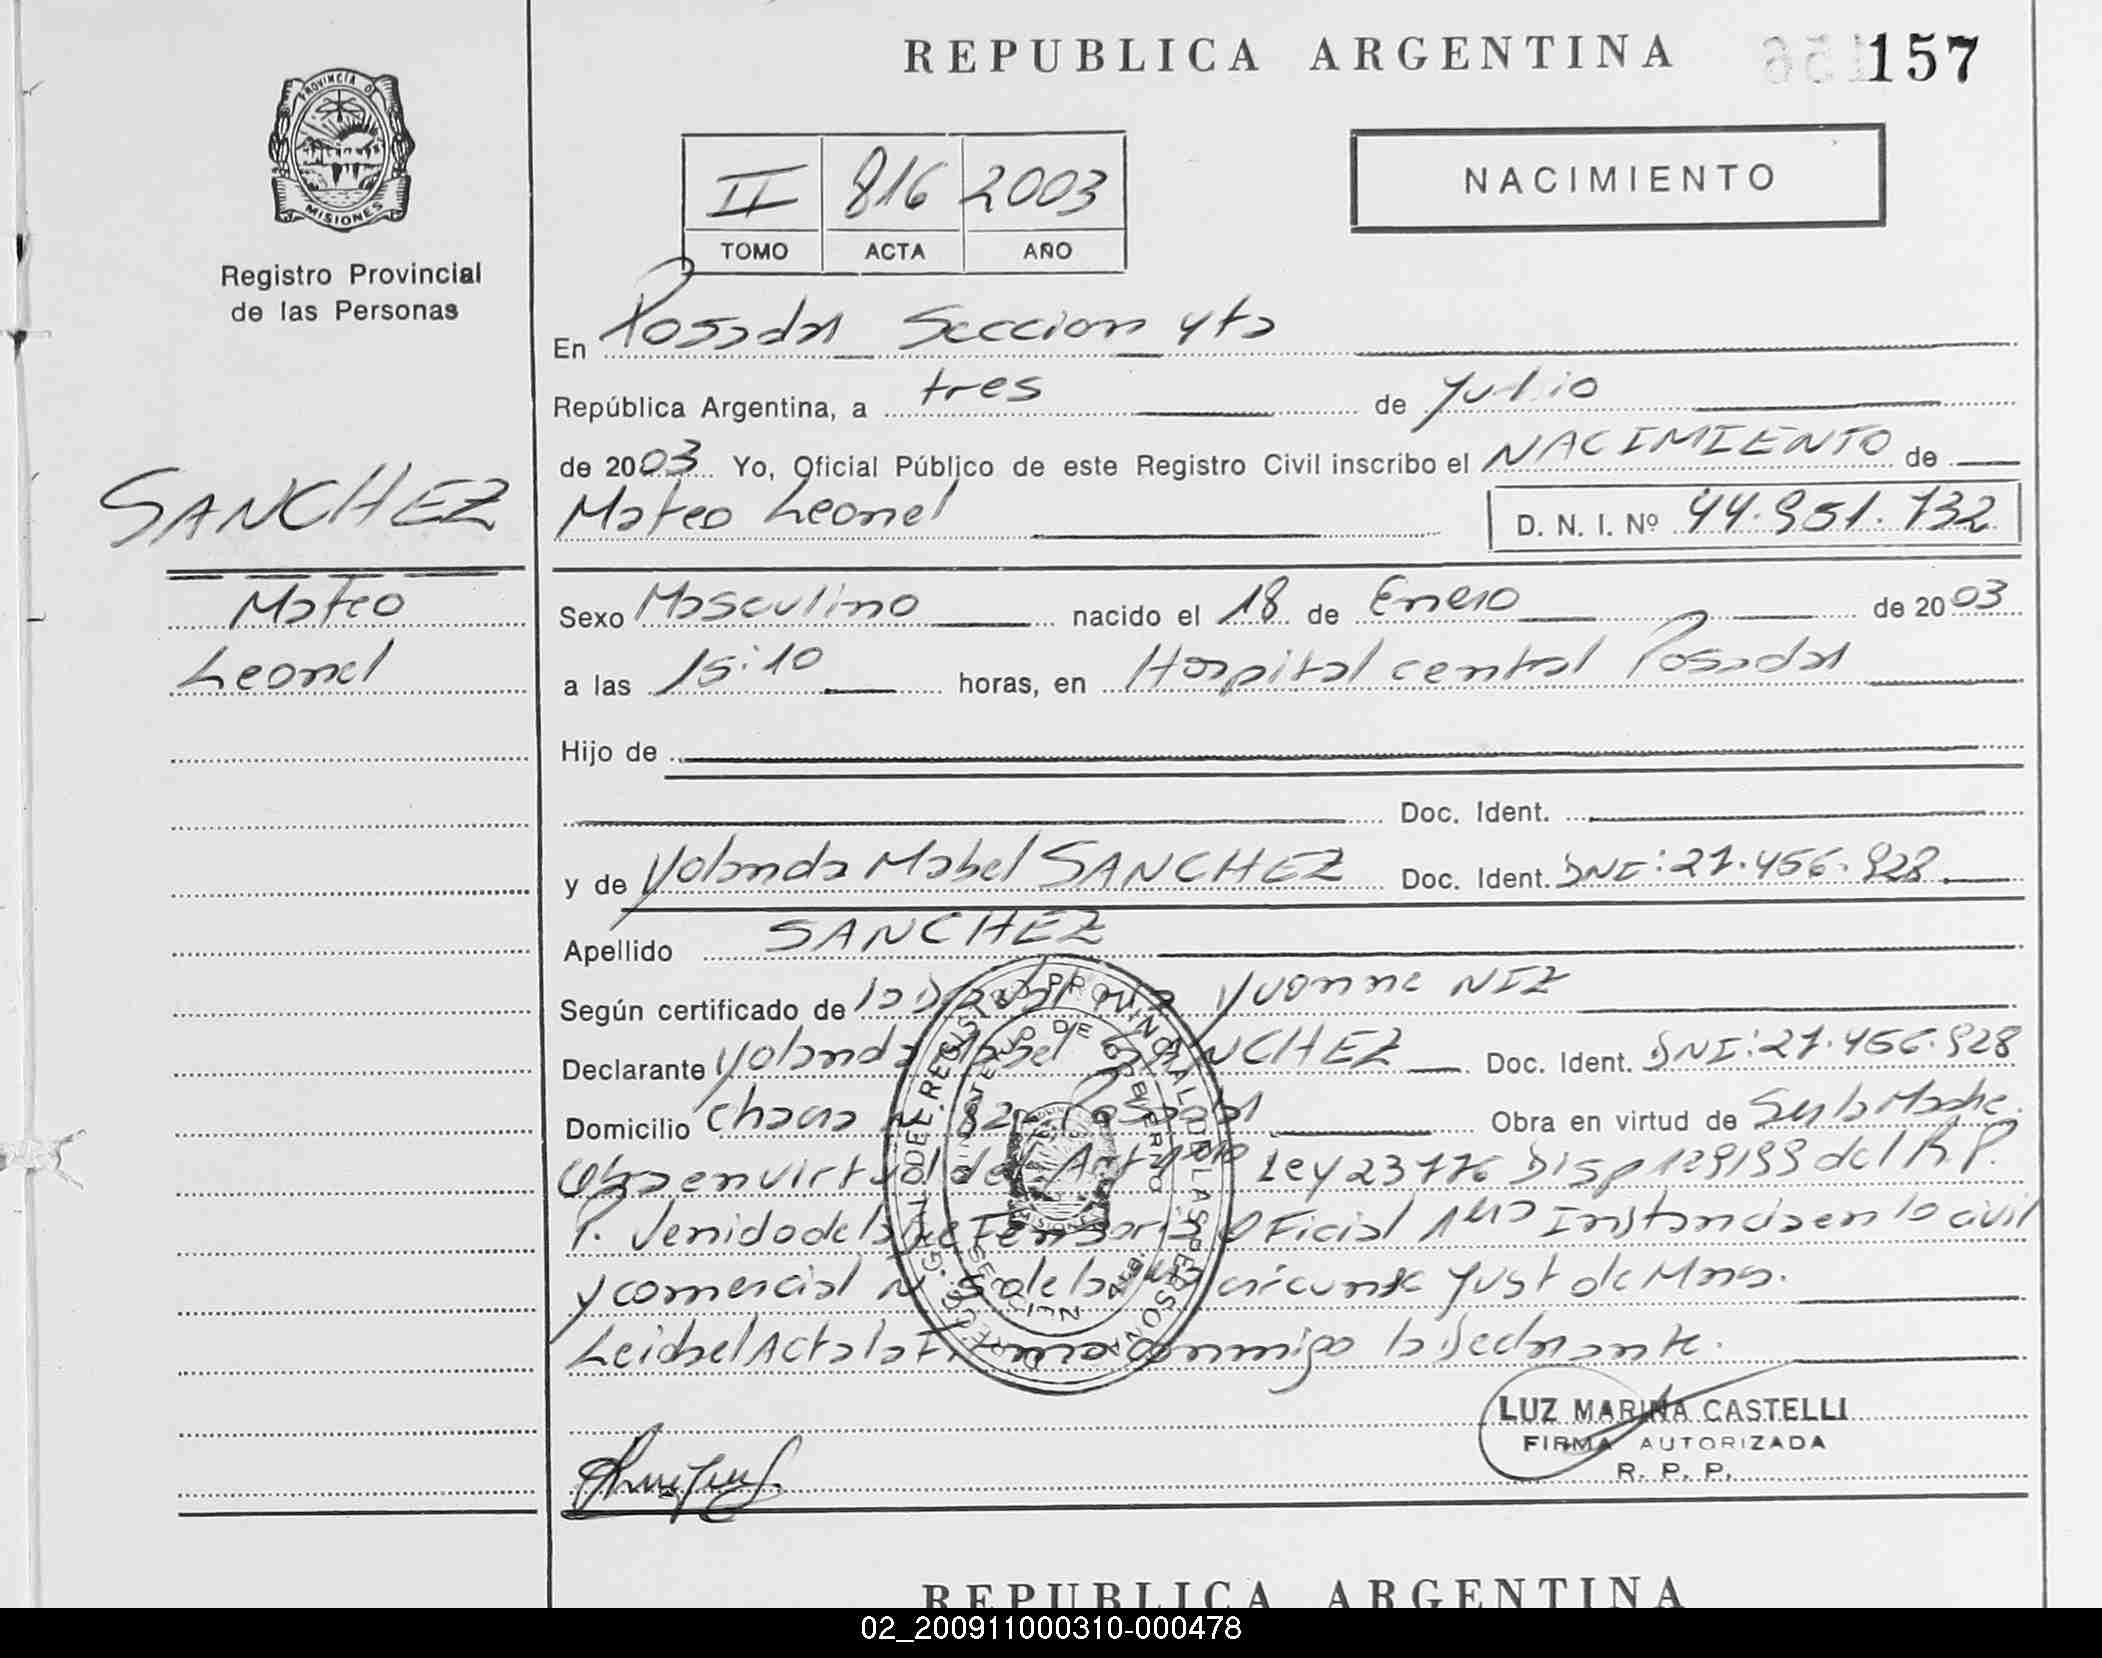 REPUBLICA ARGENTINA 157
PROVINCIA D
MISIONES
Registro Provincial
de las Personas
II 816 2003
TOMO ACTA AÑO
NACIMIENTO
En Posadas Seccion 4ta
República Argentina, a tres de Julio
de 2003 Yo, Oficial Público de este Registro Civil inscribo el NACIMIENTO de
SANCHEZ
Mateo Leonel D. N. I. Nº 44.951.732
Mateo
Leonel
Sexo Masculino nacido el 18 de Enero de 2003
a las 15:10 horas, en Hospital central Posadas
Hijo de
Doc. Ident.
y de Yolanda Mabel SANCHEZ Doc. Ident. DNI: 27.456.928
Apellido SANCHEZ
Según certificado de la Yvonne NIZ
Declarante Yolanda Mabel SANCHEZ Doc. Ident. DNI: 27.456.928
Domicilio Chacra 82 Posadas Obra en virtud de Ser la Madre.
Obra en virtud del Art Ley 23776 Disp 129/99 del R.P.
P. Venido de la Defensoria Oficial 1era Instancia en lo civil
y comercial N. 5 de la circunsc Just de Mnes.
Leida el Acta la Firma conmigo la Declarante.
LUZ MARINA CASTELLI
FIRMA AUTORIZADA
R. P. P.
REPUBLICA ARGENTINA
02_200911000310-000478